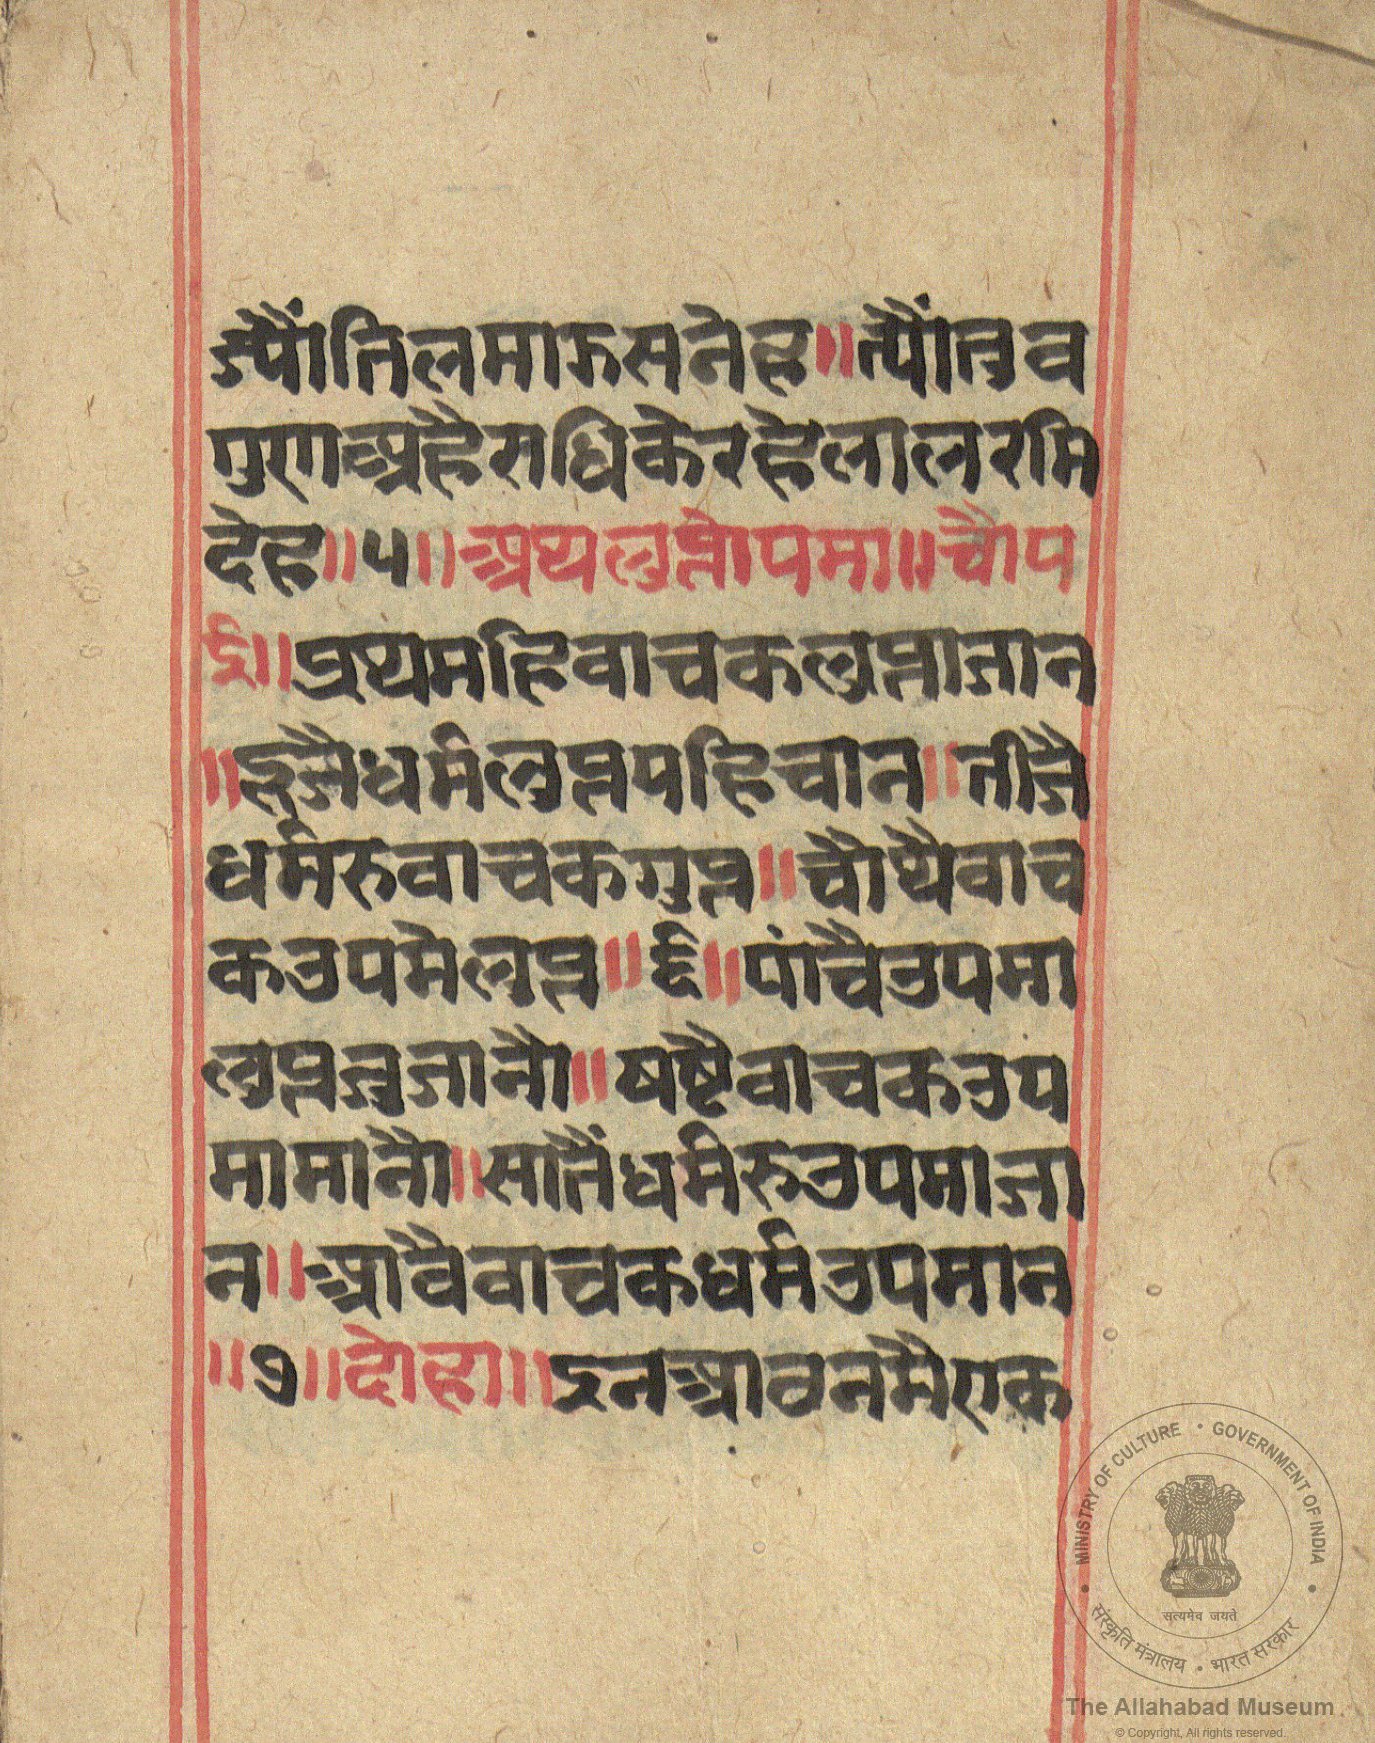 ज्यौंतिलमाऊसनेह॥त्यौंतुव
गुणअहैराधिकेरहेलालरमि
देह॥५॥अथलुप्तोपमा॥चौप
ई॥प्रथमहिवाचकलुप्ताजान
॥दूजैधर्मलुप्तपहिचान॥तीजै
धर्मरुवाचकगुप्त॥चौथैवाच
कउपमेलुप्त॥६॥पांचैउपमा
लुप्तजुजानौ॥षष्टैवाचकउप
मामानौ॥सातैंधर्मरुउपमाजा
न॥आठैवाचकधर्मउपमान
॥७॥दोहा॥इनआठनमैएक
MINISTRY OF CULTURE • GOVERNMENT OF INDIA
सत्यमेव जयते
संस्कृति मंत्रालय • भारत सरकार
The Allahabad Museum
© Copyright, All rights reserved.